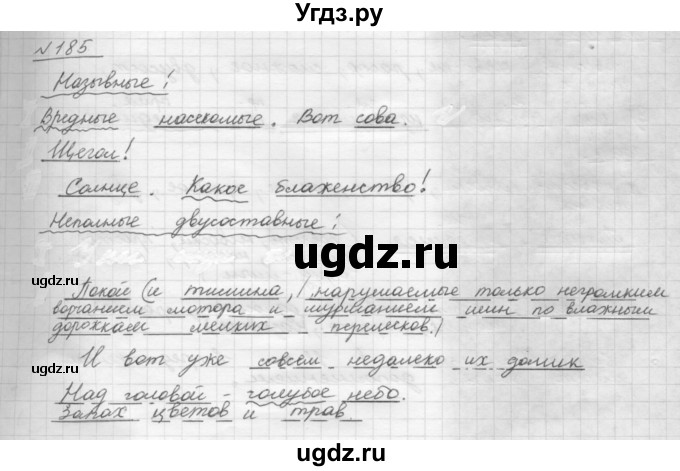 Угдз.ру
№185
Назывные!
Вредные насекомые. Вот сова.
Щегол!
Солнце. Какое блаженство!
Неполные двусоставные!
ugdz.ru
Покой (и тишина, нарушаемые только негромким
ворчанием мотора и шуршанием шин по влажным
дорожкам мелких перелесков.)
ugdz.ru
И вот уже совсем недалеко их домик
Над головой - голубое небо.
Запах цветов и трав
ugdz.ru